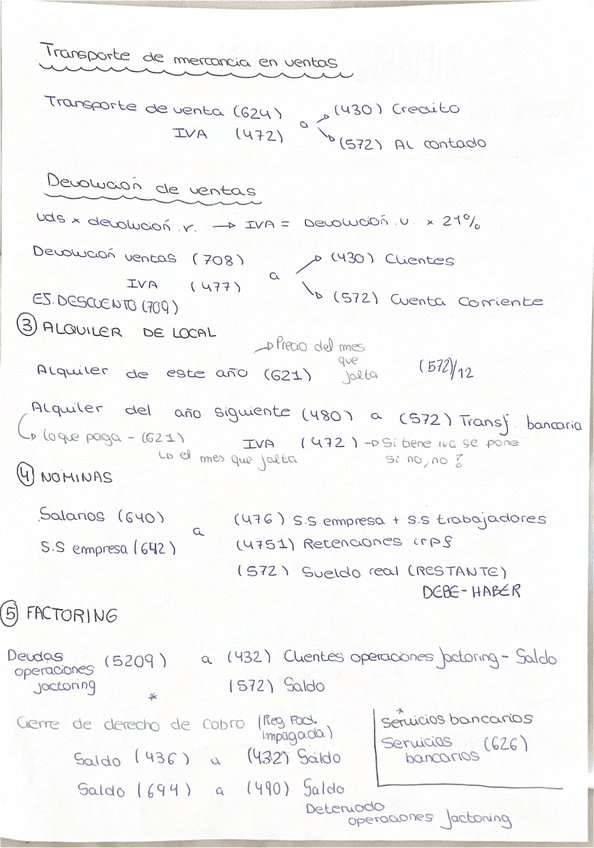 Transporte de mercancia en ventas
Transporte de venta (624) a (430) Credito
IVA (472) (572) Al contado
Devolución de ventas
uds x devolución.v. → IVA = Devolución.v. x 21%
Devolución ventas (708) a (430) Clientes
IVA (477) (572) Cuenta Corriente
EJ. DESCUENTO (709)
③ ALQUILER DE LOCAL
→ Precio del mes que falta
Alquiler de este año (621) (572)/12
Alquiler del año siguiente (480) a (572) Transf. bancaria
→ lo que paga - (621) IVA (472) → Si tiene iva se pone
→ el mes que falta si no, no!
④ NOMINAS
Salarios (640) a (476) S.S empresa + S.S trabajadores
S.S empresa (642) (4751) Retenciones irpf
(572) Sueldo real (RESTANTE)
DEBE-HABER
⑤ FACTORING
Deudas operaciones factoring (5209) a (432) Clientes operaciones factoring - Saldo
* (572) Saldo
Cierre de derecho de cobro (Reg. Fact. impagada)
Saldo (436) a (432) Saldo
Saldo (694) a (490) Saldo
Deteriodo operaciones factoring
* Servicios bancarios
Servicios bancarios (626)